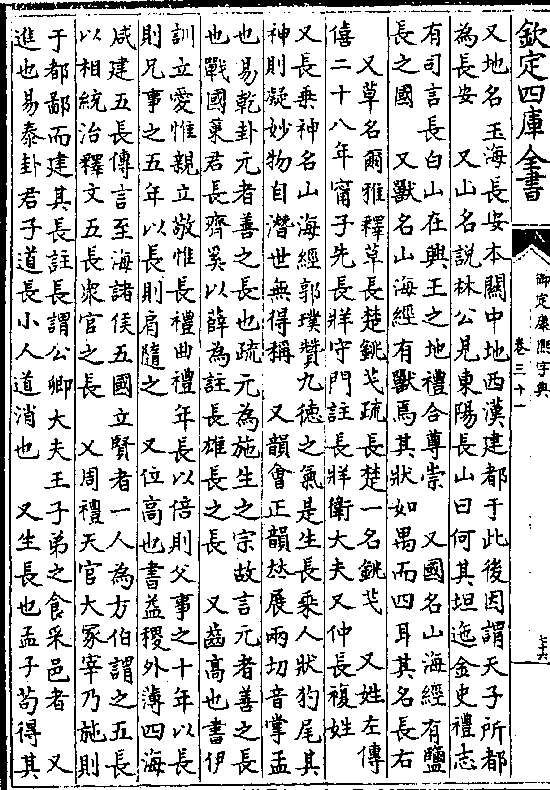 欽定四庫全書
御定康熙字典
卷三十一
又地名玉海長安本關中地西漢建都于此後因謂天子所都
為長安　又山名説林公見東陽長山曰何其坦迤金史禮志
有司言長白山在興王之地禮合尊崇　又國名山海經有鹽
長之國　又獸名山海經有獸焉其狀如禺而四耳其名長右
又草名爾雅釋草長楚銚芅疏長楚一名銚芅　又姓左傳
僖二十八年甯子先長牂守門註長牂衛大夫又仲長複姓
又長乗神名山海經郭璞贊九德之氣是生長乗人狀豹尾其
神則凝妙物自潛世無得稱　又韻會正韻𠀤展兩切音掌孟
也易乾卦元者善之長也疏元為施生之宗故言元者善之長
也戰國䇿君長齊奚以薛為註長雄長之長　又齒高也書伊
訓立愛惟親立敬惟長禮曲禮年長以倍則父事之十年以長
則兄事之五年以長則肩隨之　又位高也書益稷外薄四海
咸建五長傳言至海諸侯五國立賢者一人為方伯謂之五長
以相統治釋文五長衆官之長　又周禮天官大冡宰乃施則
于都鄙而建其長註長謂公卿大夫王子弟之食采邑者　又
進也易泰卦君子道長小人道消也　又生長也孟子苟得其